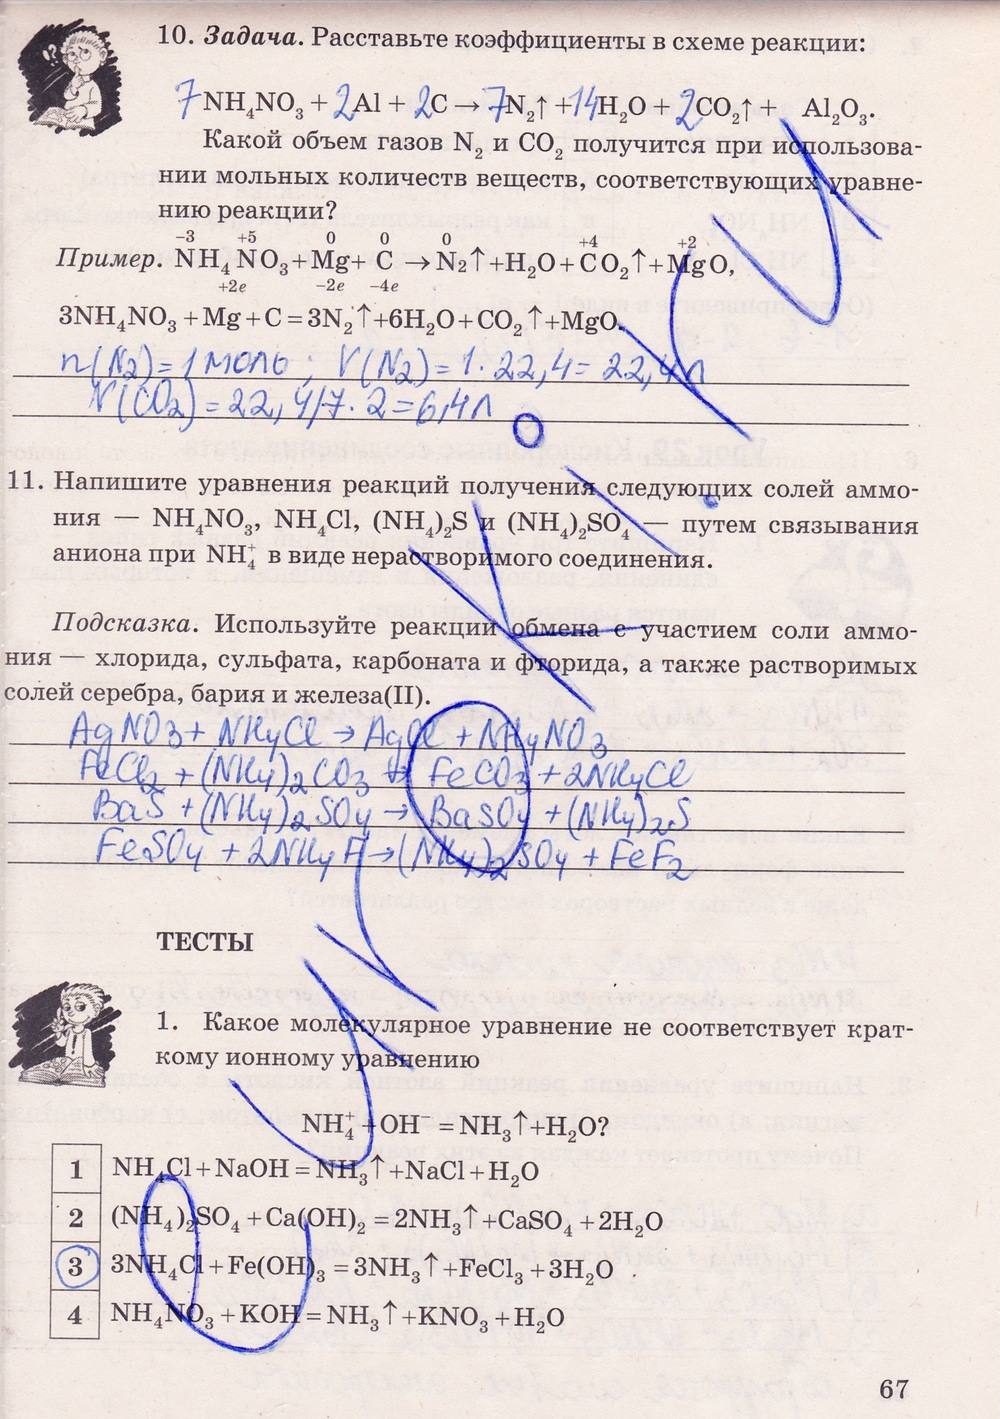 10. Задача. Расставьте коэффициенты в схеме реакции:
7NH₄NO₃ + 2Al + 2C → 7N₂↑ + 14H₂O + 2CO₂↑ + Al₂O₃.
Какой объем газов N₂ и CO₂ получится при использова-
нии мольных количеств веществ, соответствующих уравне-
нию реакции?
−3 +5 0 0 0 +4 +2
Пример. NH₄NO₃+Mg+C→N₂↑+H₂O+CO₂↑+MgO,
+2e −2e −4e
3NH₄NO₃+Mg+C=3N₂↑+6H₂O+CO₂↑+MgO.
n(N₂)=1 моль; V(N₂)=1·22,4=22,4л
V(CO₂)=22,4/7·2=6,4л
11. Напишите уравнения реакций получения следующих солей аммо-
ния — NH₄NO₃, NH₄Cl, (NH₄)₂S и (NH₄)₂SO₄ — путем связывания
аниона при NH₄⁺ в виде нерастворимого соединения.
Подсказка. Используйте реакции обмена с участием соли аммо-
ния — хлорида, сульфата, карбоната и фторида, а также растворимых
солей серебра, бария и железа(II).
AgNO₃+NH₄Cl→AgCl+NH₄NO₃
FeCl₂+(NH₄)₂CO₃→FeCO₃+2NH₄Cl
BaS+(NH₄)₂SO₄→BaSO₄+(NH₄)₂S
FeSO₄+2NH₄F→(NH₄)₂SO₄+FeF₂
ТЕСТЫ
1. Какое молекулярное уравнение не соответствует крат-
кому ионному уравнению
NH₄⁺+OH⁻=NH₃↑+H₂O?
1 NH₄Cl+NaOH=NH₃↑+NaCl+H₂O
2 (NH₄)₂SO₄+Ca(OH)₂=2NH₃↑+CaSO₄+2H₂O
3 3NH₄Cl+Fe(OH)₃=3NH₃↑+FeCl₃+3H₂O
4 NH₄NO₃+KOH=NH₃↑+KNO₃+H₂O
67